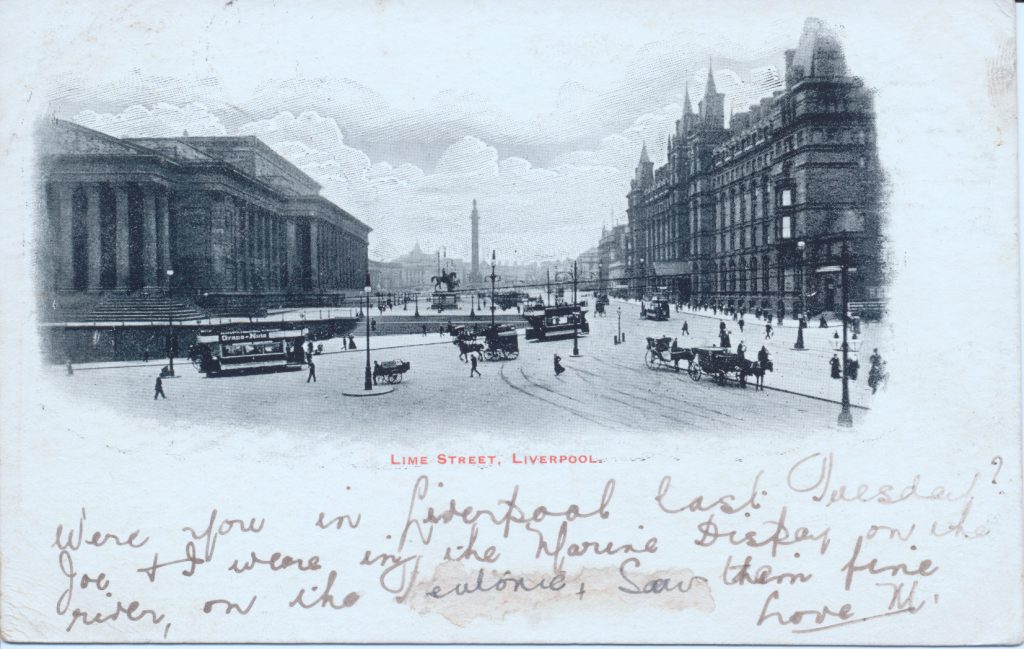 Grape-Nuts
LIME STREET, LIVERPOOL.
Were you in Liverpool last Tuesday?
Joe + I were in the Marine Dispay on the
river, on the Teutonic, Saw them fine
Love M.